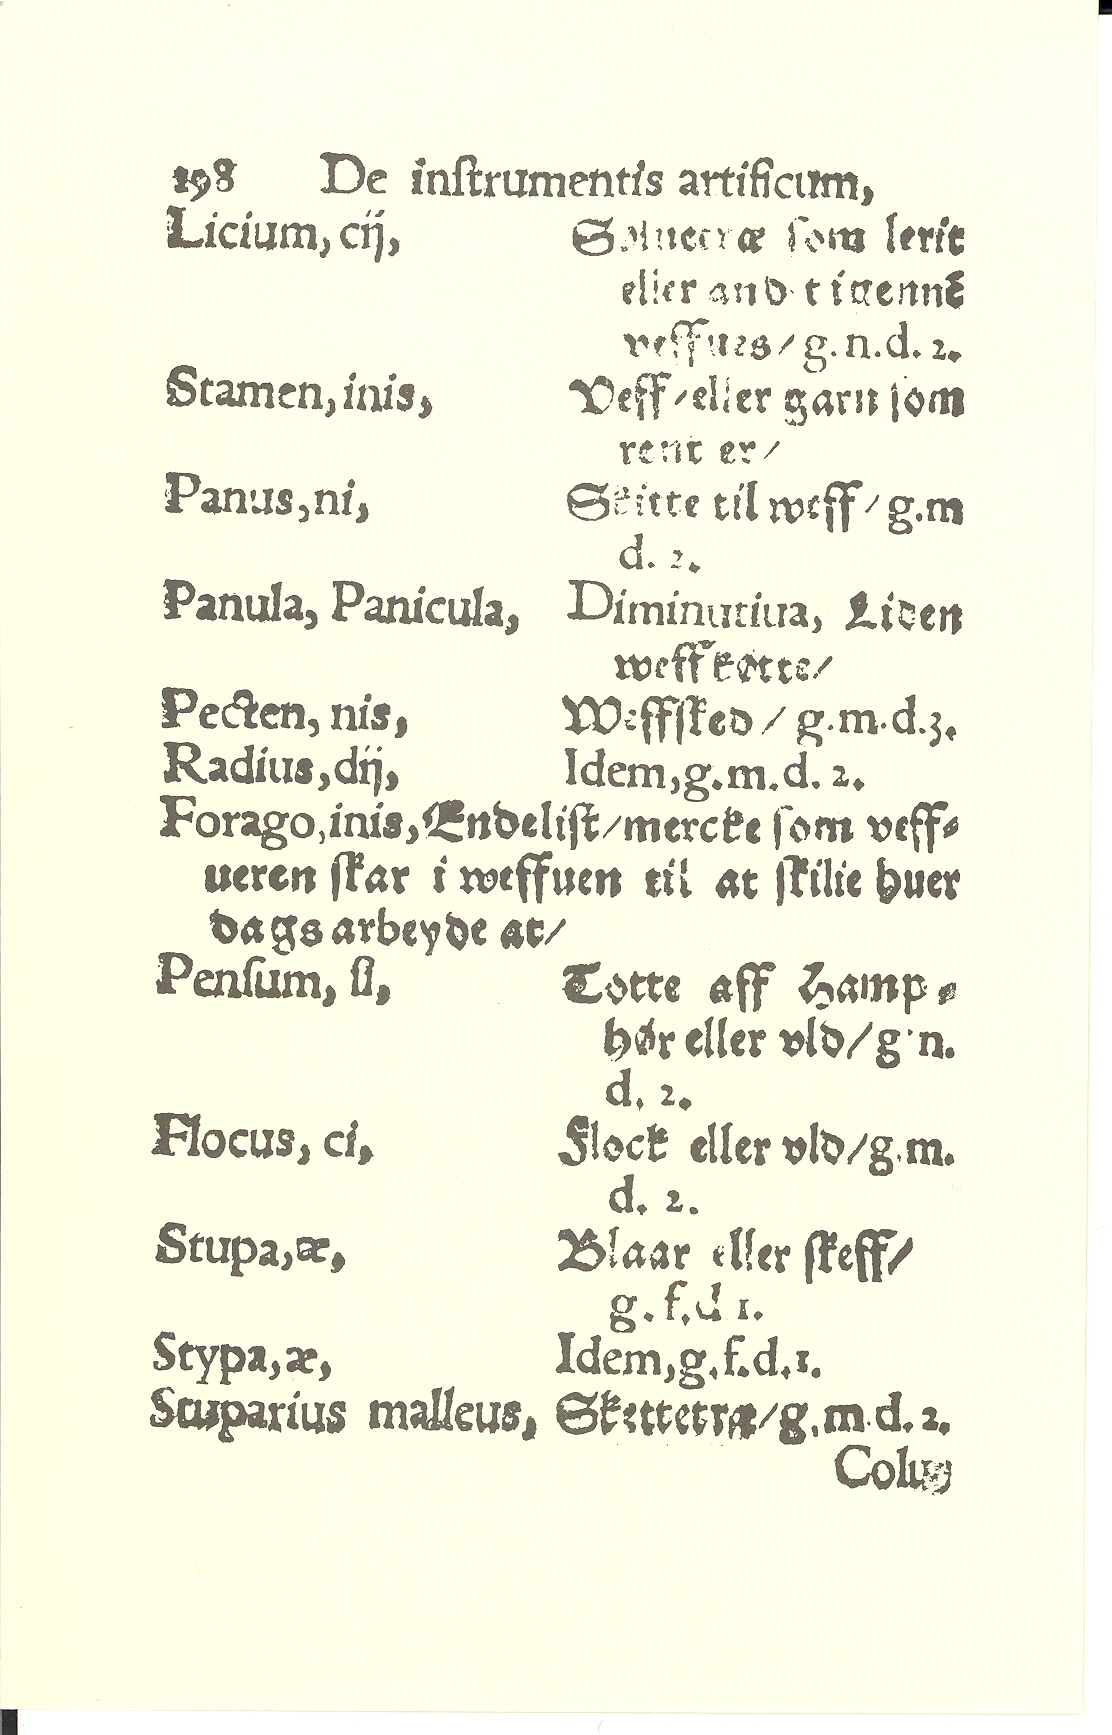 198 De inſtrumentis artificum,
Licium, cij, ſom lerit
eller igennẽ
veffues/g.n.d.2.
Stamen, inis, Veff/eller garn ſom
rent er/
Panus,ni, Skitte til weff/g.m
d. 2.
Panula, Panicula, Diminutiua, Liden
weffſkøtte/
Pecten, nis, Weffſked/ g.m.d.3.
Radius,dij, Idem,g.m.d. 2.
Forago,inis,Endeliſt/mercke ſom veff⸗
ueren ſkar i weffuen til at ſkilie huer
dags arbeyde at/
Penſum, ſi, Totte aff Hamp⸗
hør eller vld/g.n.
d. 2.
Flocus, ci, Flock eller vld/g.m.
d. 2.
Stupa,æ, Blaar eller ſkeff/
g. f.d 1.
Stypa,æ, Idem,g.f.d.1.
Stuparius malleus, Skettetræ/g.m.d.2.
Colus